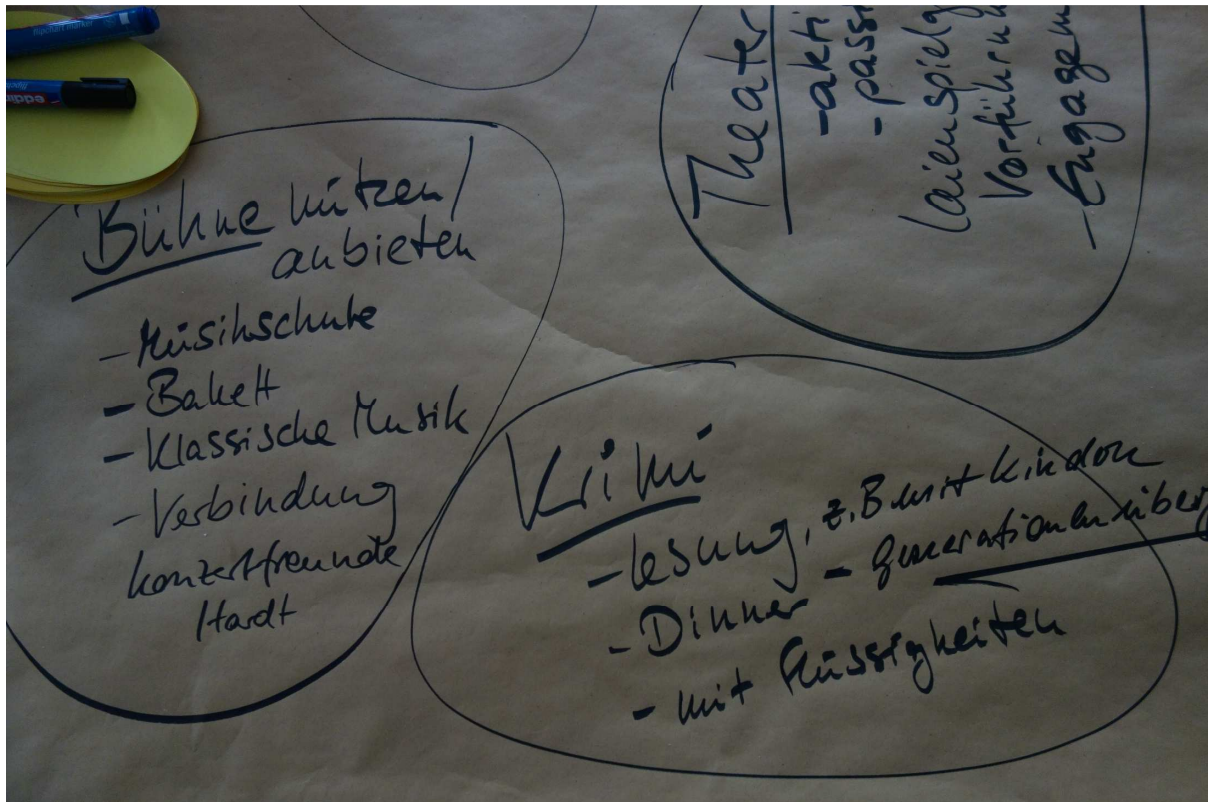 Bühne nützen/
anbieten
- Musikschule
- Ballett
- Klassische Musik
- Verbindung
Konzertfreunde
Hardt
Theater
- akti
- passi
Laienspielg
Vorführun
- Engagem
Krimi
- Lesung, z.B mit Kindern
- generationenüberg
- Dinner
- mit Flüssigkeiten